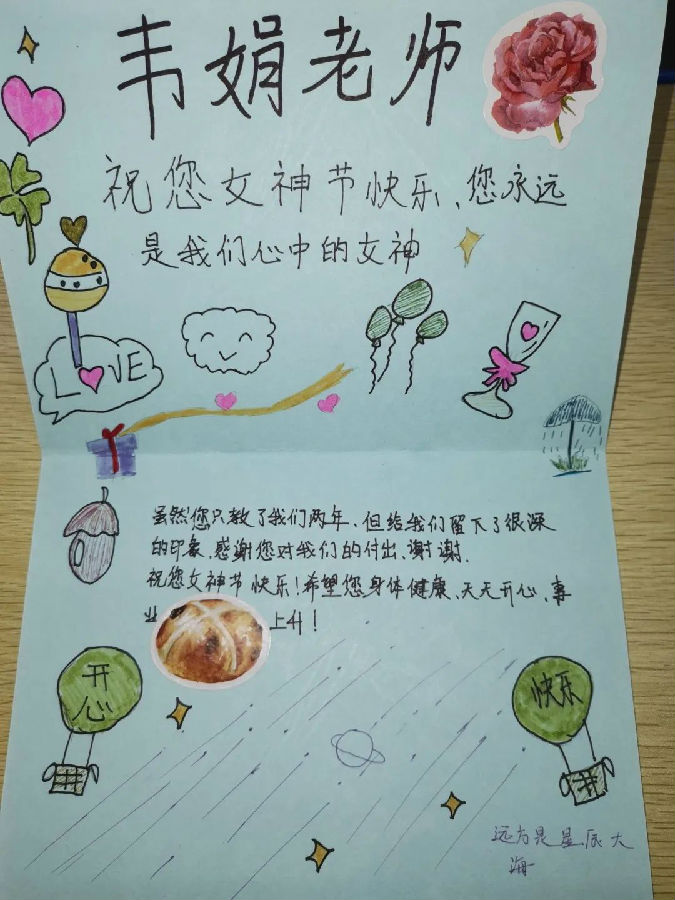 韦娟老师
祝您女神节快乐、您永远
是我们心中的女神
LOVE
虽然您只教了我们两年、但给我们留下了很深
的印象.感谢您对我们的付出、谢谢.
祝您女神节快乐!希望您身体健康、天天开心、事
业 上升!
开
心
快乐
远方是星辰大
海